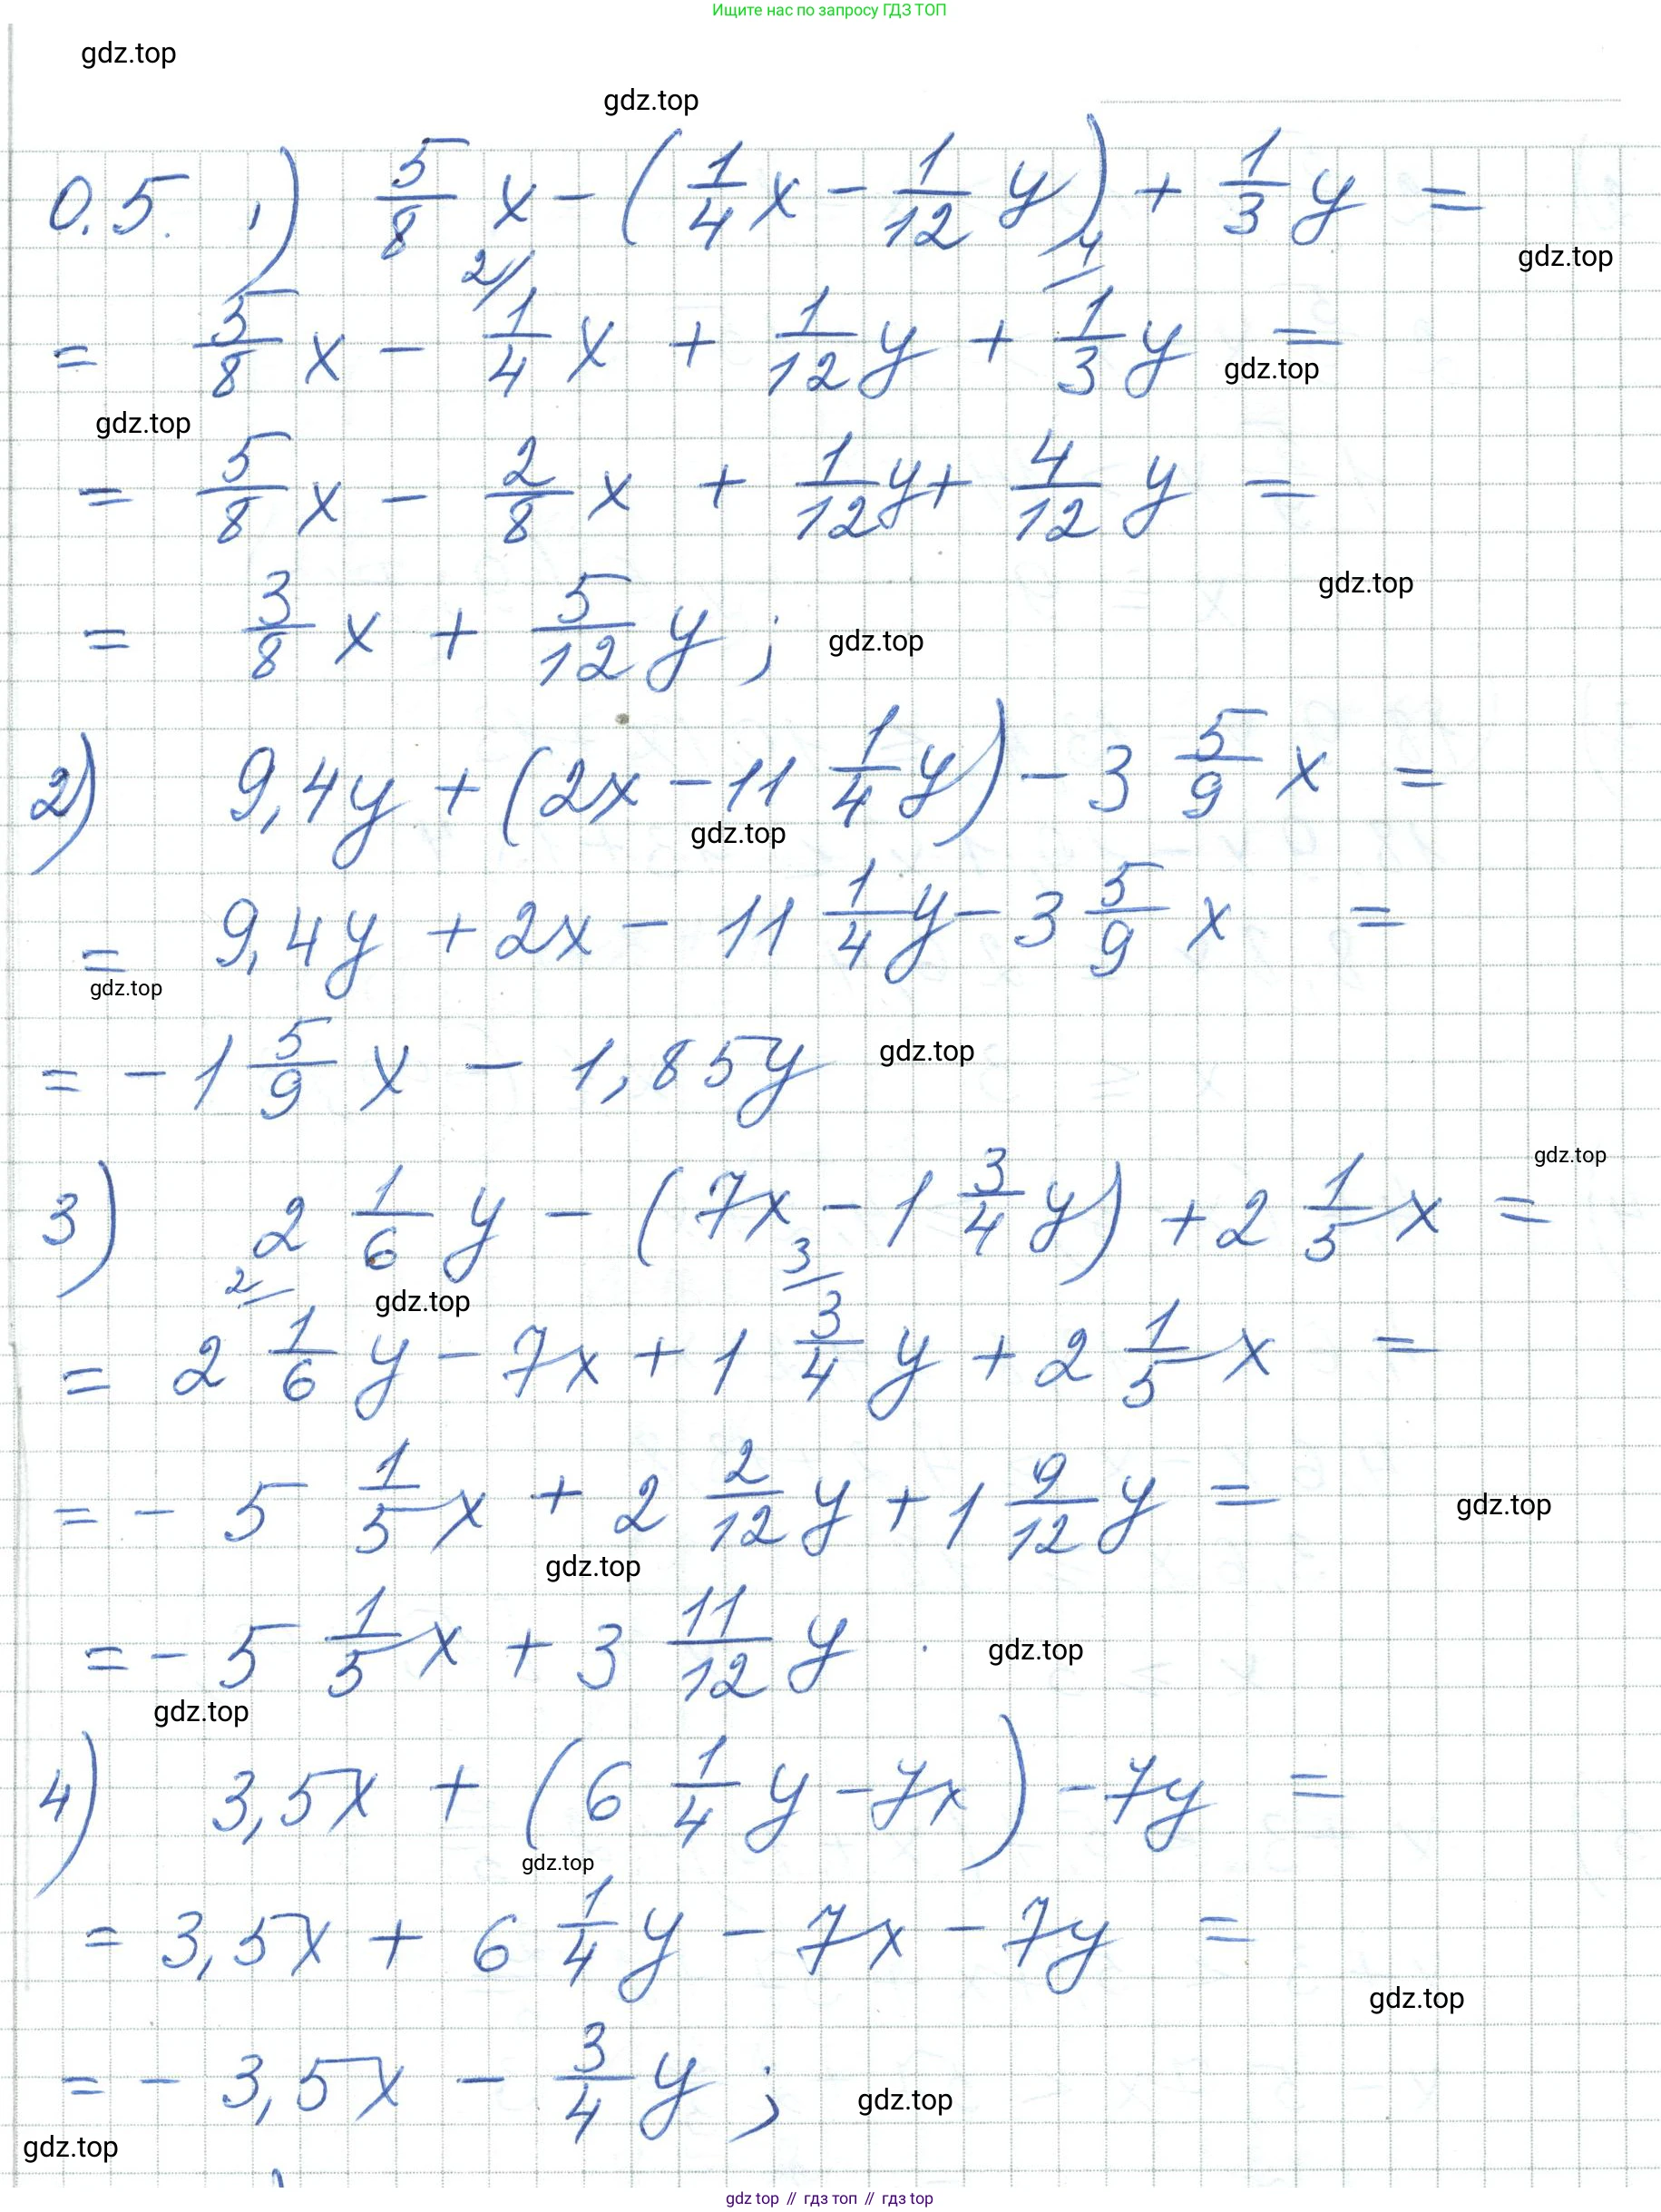 Ищите нас по запросу ГДЗ ТОП
gdz.top
gdz.top
0.5. 1) 5/8 x - (1/4 x - 1/12 y) + 1/3 y =
gdz.top
2/ 4/
= 5/8 x - 1/4 x + 1/12 y + 1/3 y =
gdz.top
gdz.top
= 5/8 x - 2/8 x + 1/12 y + 4/12 y =
gdz.top
= 3/8 x + 5/12 y ;
gdz.top
2) 9,4y + (2x - 11 1/4 y) - 3 5/9 x =
gdz.top
= 9,4y + 2x - 11 1/4 y - 3 5/9 x =
gdz.top
= - 1 5/9 x - 1,85y
gdz.top
gdz.top
3) 2 1/6 y - (7x - 1 3/4 y) + 2 1/5 x =
2/ 3/
gdz.top
= 2 1/6 y - 7x + 1 3/4 y + 2 1/5 x =
= - 5 1/5 x + 2 2/12 y + 1 9/12 y =
gdz.top
gdz.top
= - 5 1/5 x + 3 11/12 y .
gdz.top
gdz.top
4) 3,5x + (6 1/4 y - 7x) - 7y =
gdz.top
= 3,5x + 6 1/4 y - 7x - 7y =
gdz.top
= - 3,5x - 3/4 y ;
gdz.top
gdz.top
gdz top // гдз топ // gdz top